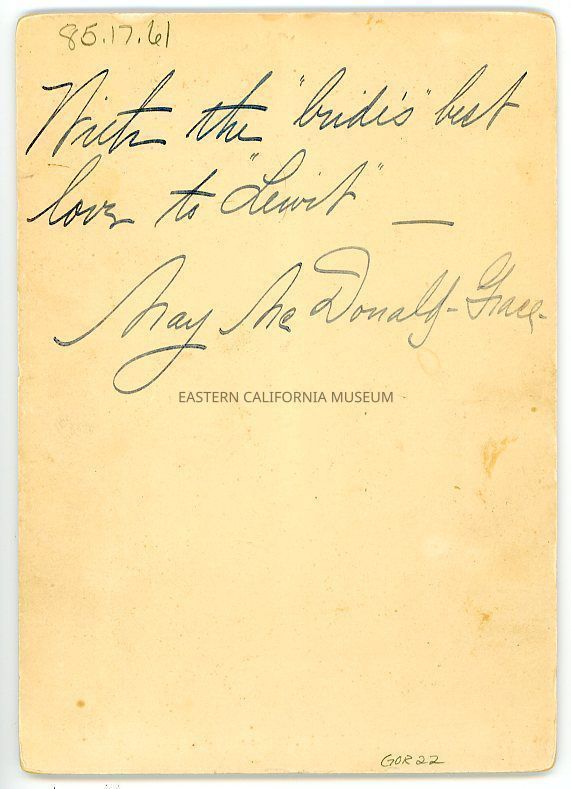 85.17.61
With the "bride's" best
love to "Lewit" —
May McDonald-Grace-
EASTERN CALIFORNIA MUSEUM
GOR 22